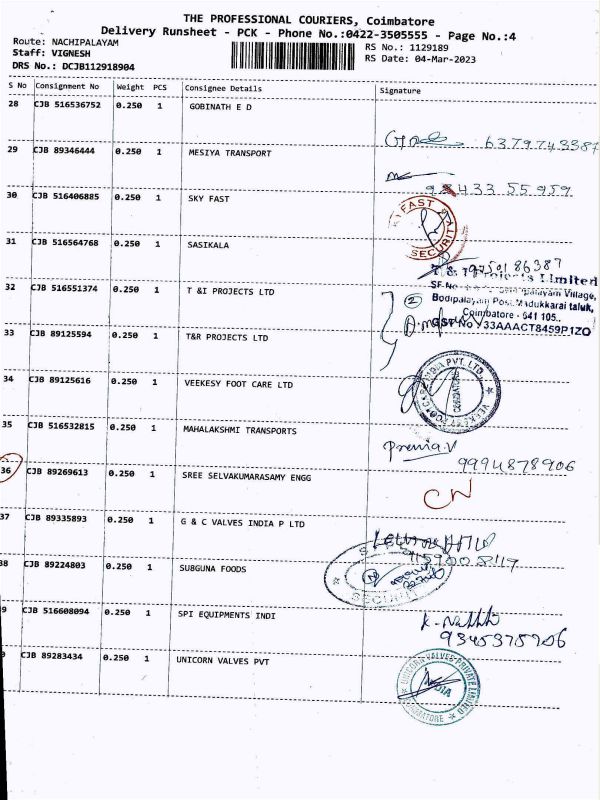 THE PROFESSIONAL COURIERS, Coimbatore
Delivery Runsheet - PCK - Phone No.:0422-3505555 - Page No.:4
Route: NACHIPALAYAM
RS No.: 1129189
Staff: VIGNESH
RS Date: 04-Mar-2023
DRS No.: DCJB112918904
S No Consignment No Weight PCS Consignee Details Signature
28 CJB 516536752 0.250 1 GOBINATH E D
6379743387
29 CJB 89346444 0.250 1 MESIYA TRANSPORT
98433 55959
30 CJB 516406885 0.250 1 SKY FAST
SKY FAST
SECURITY
31 CJB 516564768 0.250 1 SASIKALA
9750186387
Limited
Village,
32 CJB 516551374 0.250 1 T &I PROJECTS LTD
2
Bodipalayam Post, Madukkarai taluk,
Coimbatore - 641 105.
GST No 33AAACT8459P1ZO
33 CJB 89125594 0.250 1 T&R PROJECTS LTD
34 CJB 89125616 0.250 1 VEEKESY FOOT CARE LTD
VEEKESY FOOT CARE INDIA PVT. LTD.
COIMBATORE
35 CJB 516532815 0.250 1 MAHALAKSHMI TRANSPORTS
Premia.V
9994878906
36 CJB 89269613 0.250 1 SREE SELVAKUMARASAMY ENGG
CN
37 CJB 89335893 0.250 1 G & C VALVES INDIA P LTD
38 CJB 89224803 0.250 1 SUBGUNA FOODS
SECURITY
9 CJB 516608094 0.250 1 SPI EQUIPMENTS INDI
9345375206
CJB 89283434 0.250 1 UNICORN VALVES PVT
UNICORN VALVES PRIVATE LIMITED
INDIA
COIMBATORE